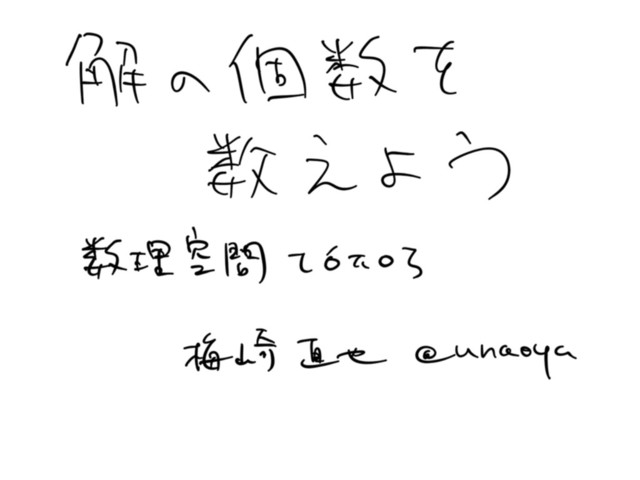 解の個数を
数えよう
数理空間 τόπος
梅崎直也 @unaoya